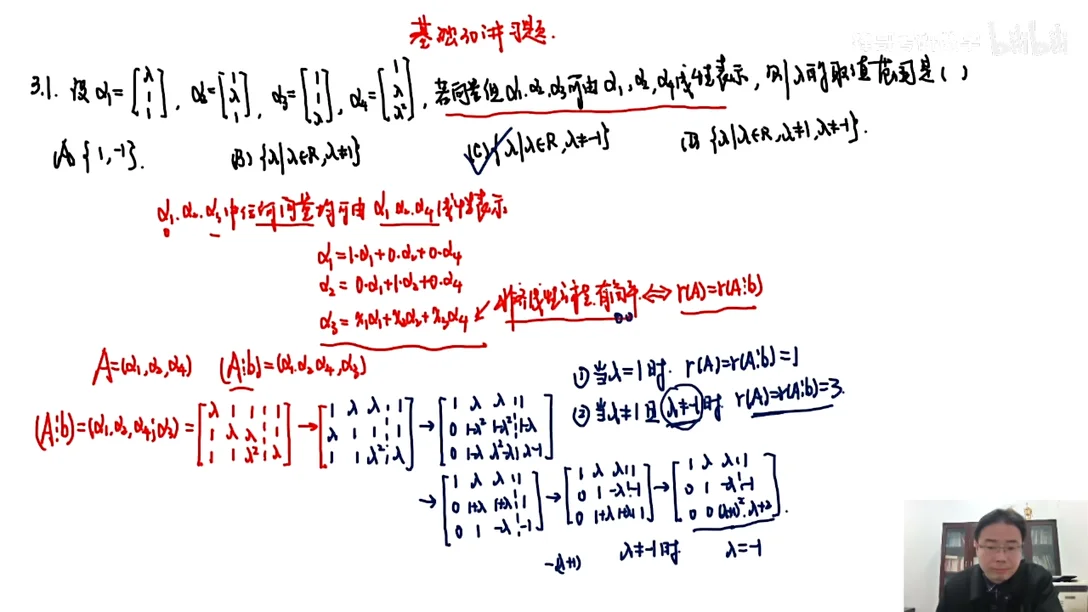 基础30讲习题.
3.1. 设 α₁=[λ 1 1], α₂=[1 λ 1], α₃=[1 1 λ], α₄=[1 λ λ²], 若向量组α₁.α₂.α₃可由α₁,α₂,α₄线性表示, 则λ的取值范围是( )
(A) {1,-1}. (B) {λ|λ∈R,λ≠1} (C) {λ|λ∈R,λ≠-1} (D) {λ|λ∈R,λ≠1,λ≠-1}.
α₁.α₂.α₃中任何向量均可由 α₁.α₂.α₄线性表示
α₁=1·α₁+0·α₂+0·α₄
α₂=0·α₁+1·α₂+0·α₄
α₃=x₁α₁+x₂α₂+x₃α₄ ↙ 非齐次线性方程有解 ⇔ r(A)=r(A⋮b)
A=(α₁,α₂,α₄) (A⋮b)=(α₁.α₂.α₄,α₃)
① 当λ=1时. r(A)=r(A⋮b)=1
② 当λ≠1且λ≠-1时 r(A)=r(A⋮b)=3.
(A⋮b)=(α₁,α₂,α₄⋮α₃)=[λ 1 1⋮1; 1 λ λ⋮1; 1 1 λ²⋮λ]→[1 λ λ⋮1; λ 1 1⋮1; 1 1 λ²⋮λ]→[1 λ λ⋮1; 0 1-λ² 1-λ²⋮1-λ; 0 1-λ λ²-λ⋮λ-1]
→[1 λ λ⋮1; 0 1+λ 1+λ⋮1; 0 1 -λ⋮-1]→[1 λ λ⋮1; 0 1 -λ⋮-1; 0 1+λ 1+λ⋮1]→[1 λ λ⋮1; 0 1 -λ⋮-1; 0 0 (λ+1)²⋮λ+2].
-(λ+1) λ≠-1时 λ=-1